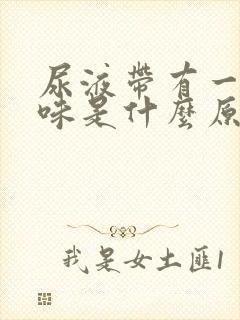 尿液帶有一
味是什麼原
我是女土匪1